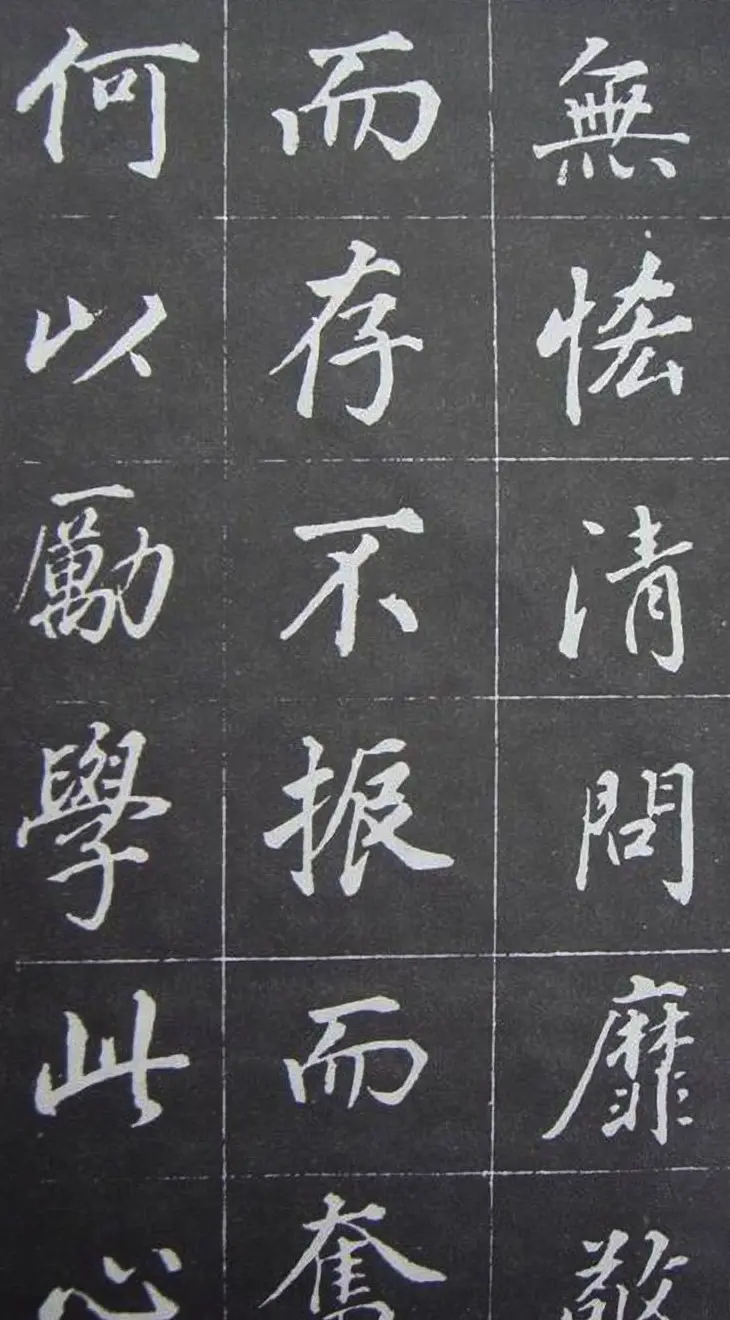 無恡清問靡
而存不振而
何以勵學此心